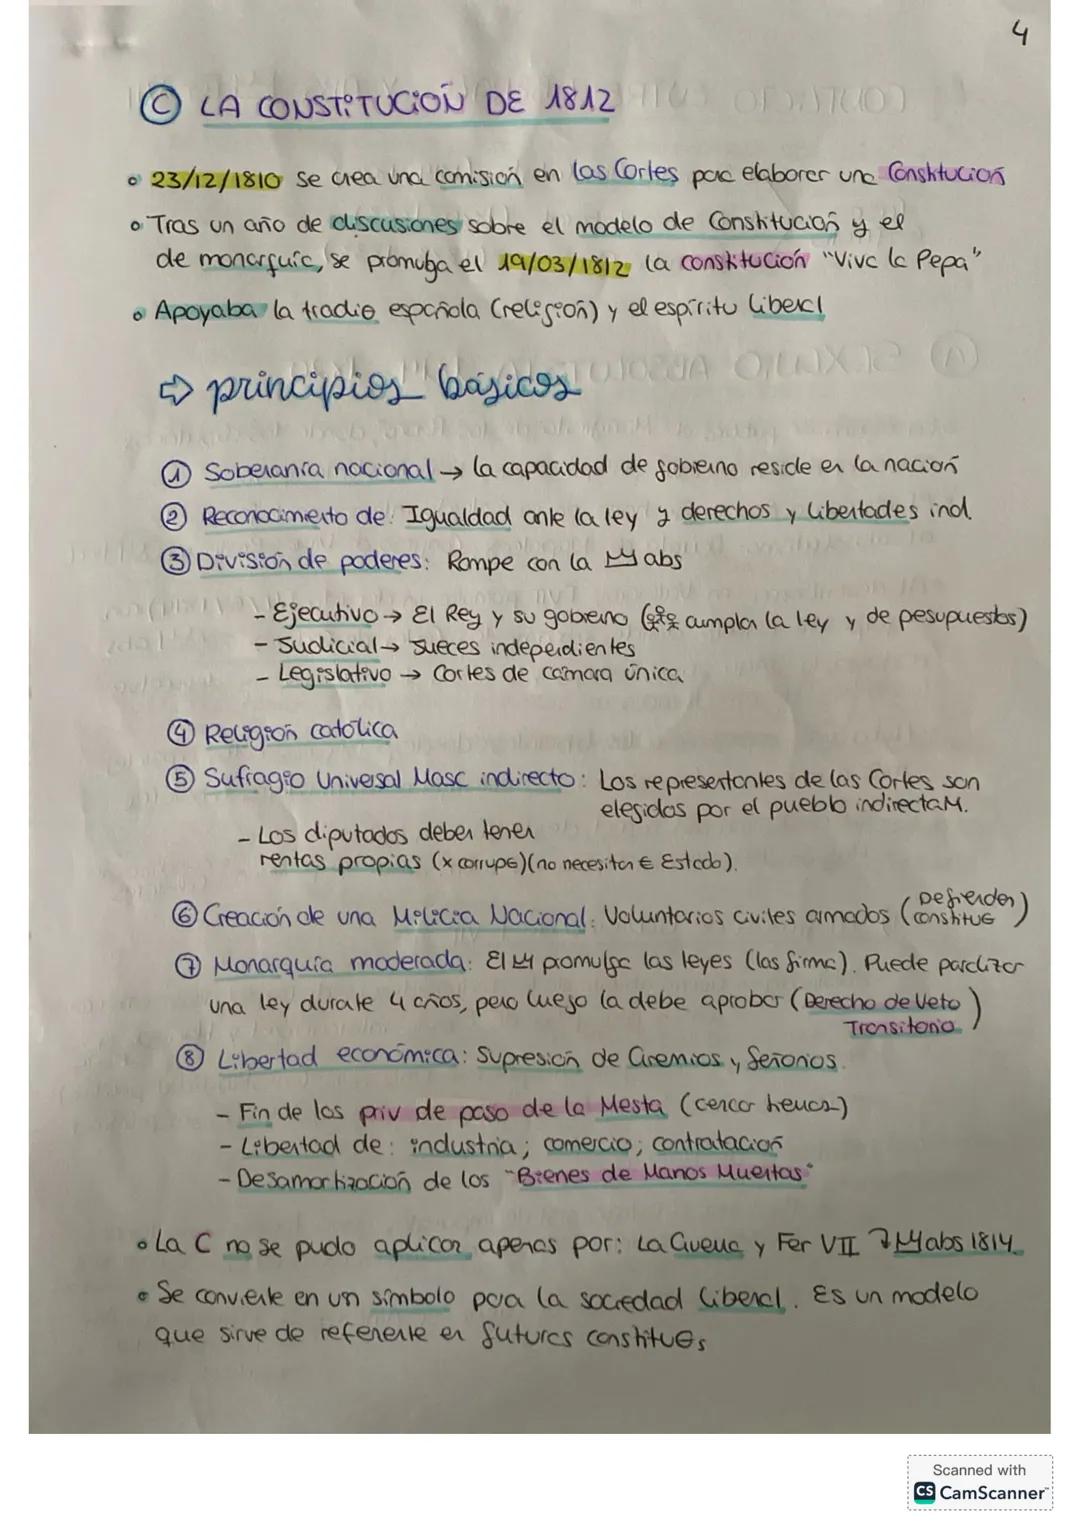 4
Ⓒ LA CONSTITUCIÓN DE 1812
• 23/12/1810 se crea una comisión en las Cortes para elaborar una Constitución
• Tras un año de discusiones sobre el modelo de Constitución y el
de monarquía, se promulga el 19/03/1812 la constitución "Viva la Pepa"
• Apoyaba la tradio española (religión) y el espíritu liberal
⇨ principios básicos
① Soberanía nacional → la capacidad de gobierno reside en la nación
② Reconocimiento de: Igualdad ante la ley y derechos y libertades ind.
③ División de poderes: Rompe con la M abs
- Ejecutivo → El Rey y su gobierno ( cumpla la ley y de pesupuestos)
- Judicial → Jueces independientes
- Legislativo → Cortes de cámara única
④ Religión católica
⑤ Sufragio Universal Masc indirecto: Los representantes de las Cortes son
elegidos por el pueblo indirectaM.
- Los diputados deben tener
rentas propias (x corrup) (no necesitan € Estado).
⑥ Creación de una Milicia Nacional: Voluntarios civiles armados (Defienden constitu)
⑦ Monarquía moderada: El M promulga las leyes (las firma). Puede paralizar
una ley durate 4 años, pero luego la debe aprobar (Derecho de Veto
Transitorio)
⑧ Libertad económica: Supresión de Gremios y Señoríos.
- Fin de los priv de paso de la Mesta (cercar)
- Libertad de: industria; comercio; contratación
- Desamortización de los "Bienes de Manos Muertas"
• La C no se pudo aplicar apenas por: La Guerra y Fer VII M abs 1814.
• Se convierte en un símbolo para la sociedad liberal. Es un modelo
que sirve de referente en futuras constitus
Scanned with
CS CamScanner